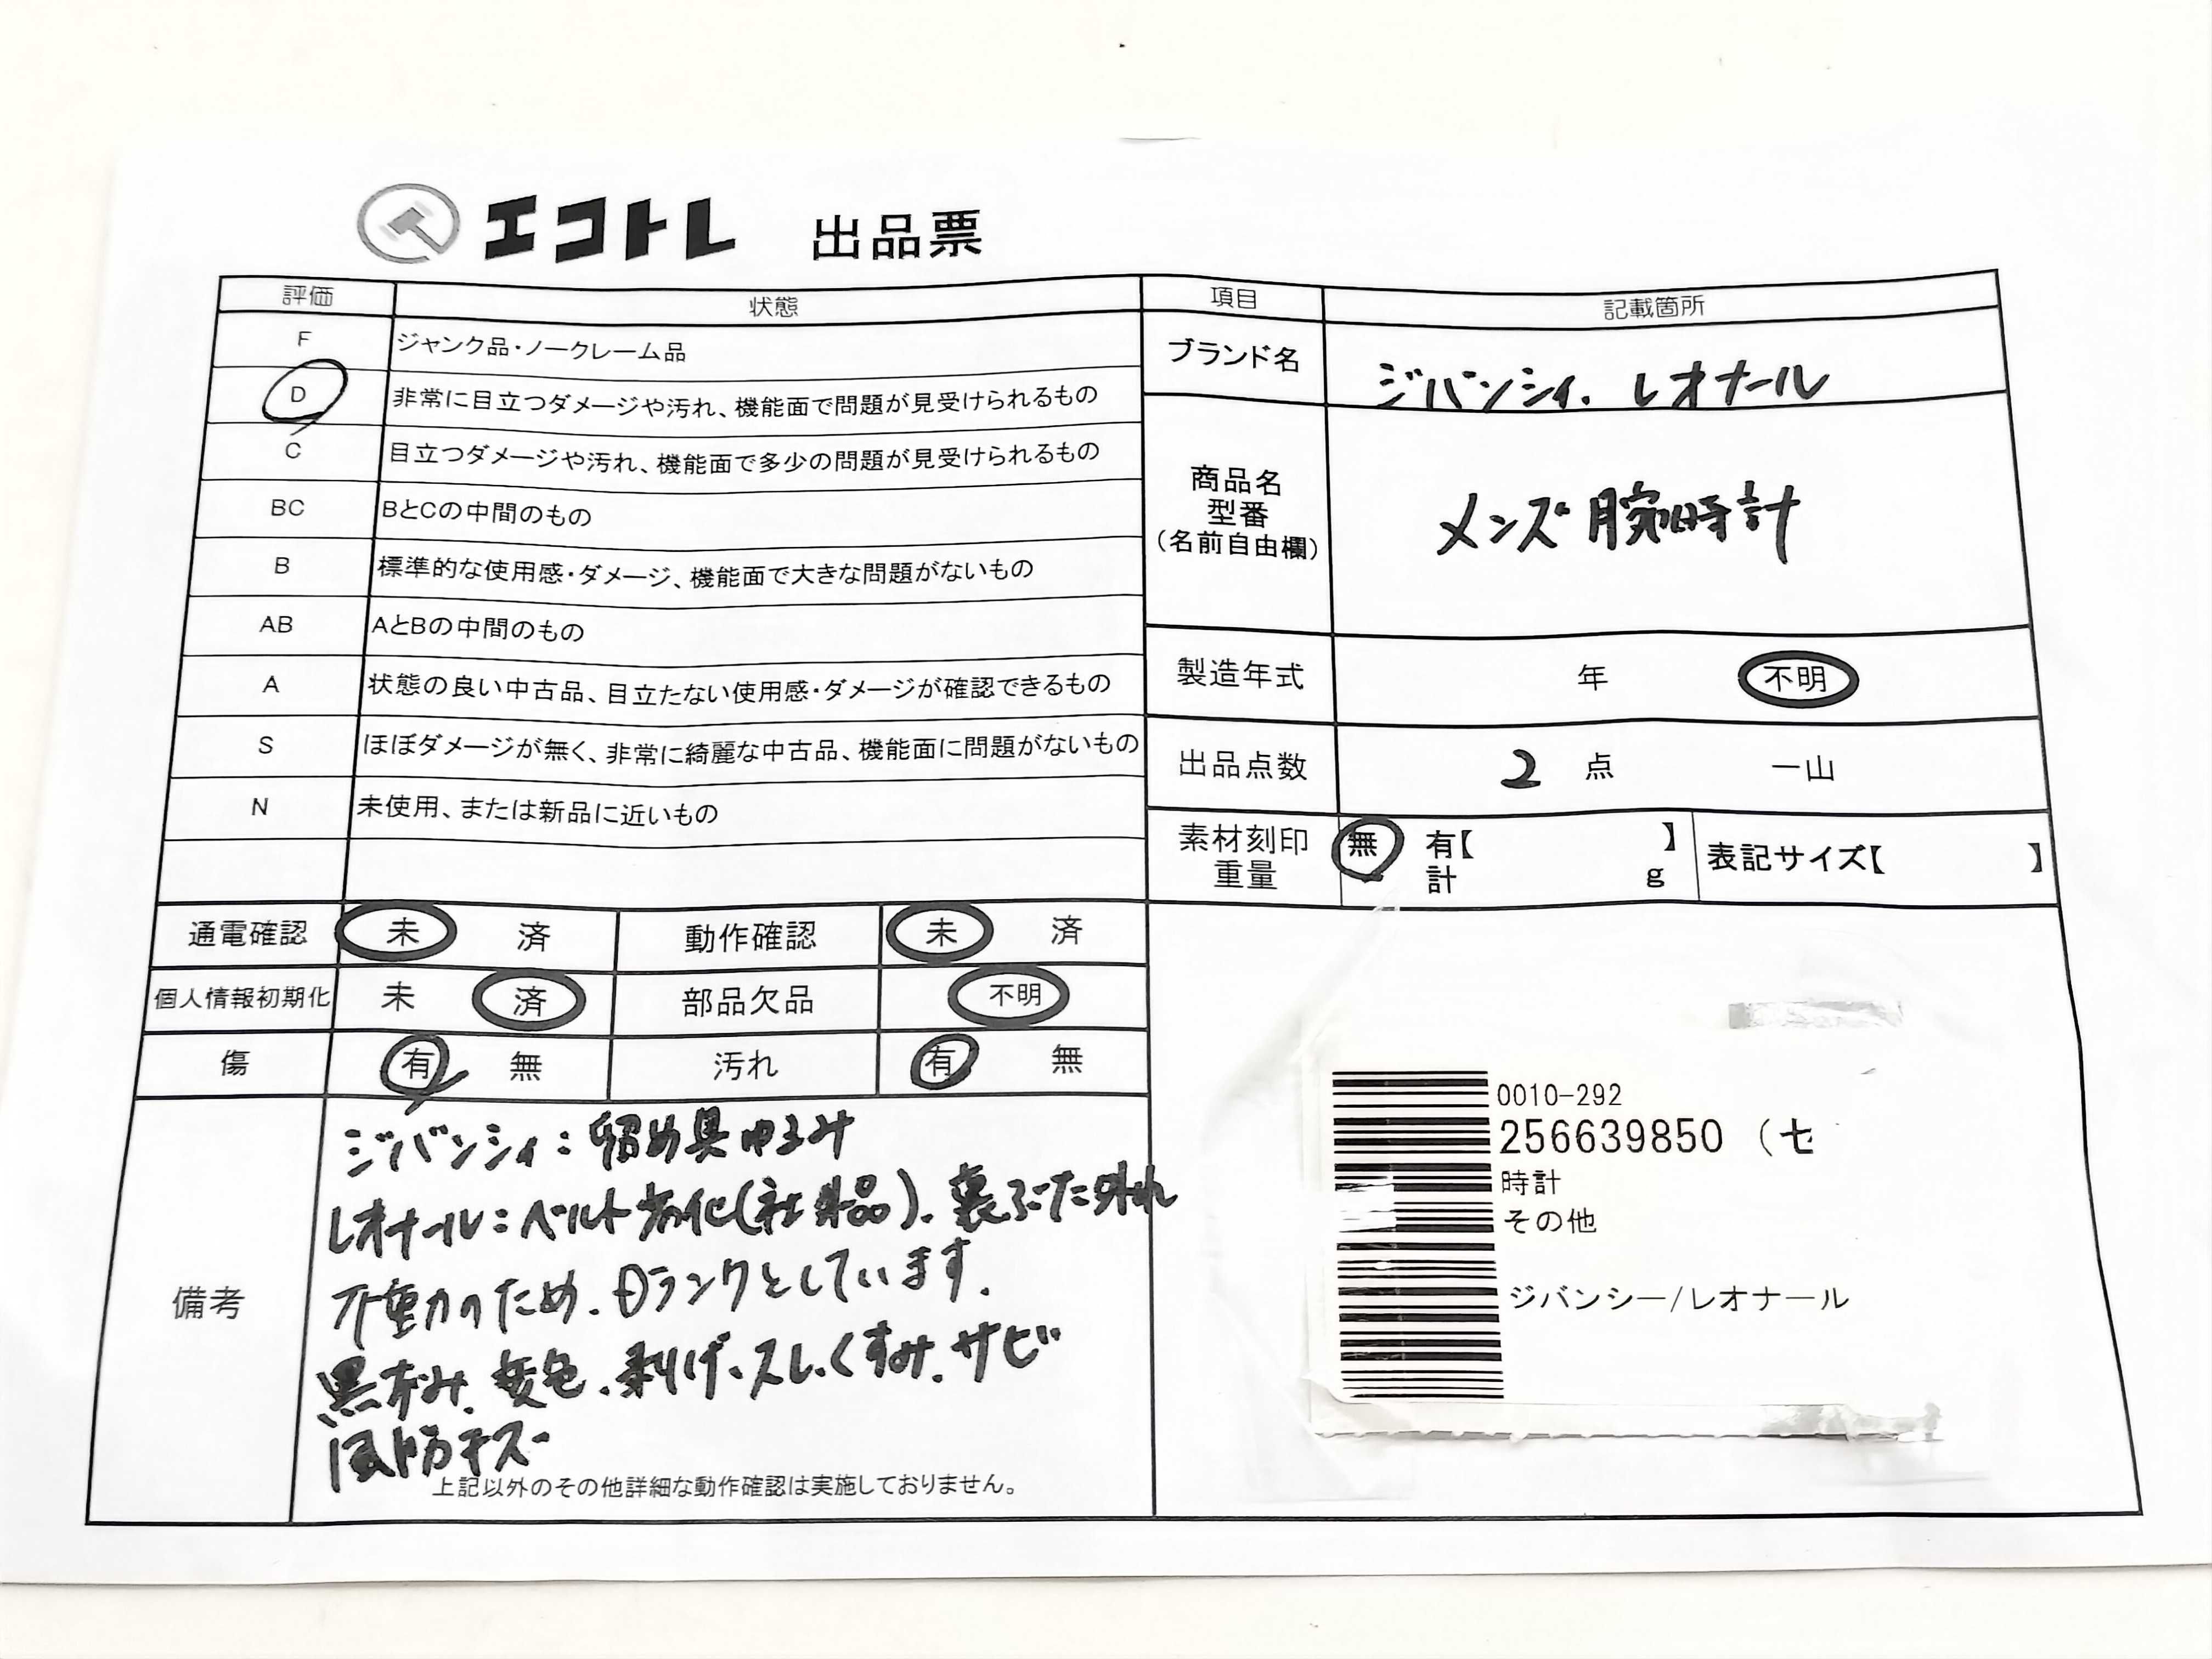 エコトレ 出品票
評価 状態
F ジャンク品・ノークレーム品
D 非常に目立つダメージや汚れ、機能面で問題が見受けられるもの
C 目立つダメージや汚れ、機能面で多少の問題が見受けられるもの
BC BとCの中間のもの
B 標準的な使用感・ダメージ、機能面で大きな問題がないもの
AB AとBの中間のもの
A 状態の良い中古品、目立たない使用感・ダメージが確認できるもの
S ほぼダメージが無く、非常に綺麗な中古品、機能面に問題がないもの
N 未使用、または新品に近いもの
通電確認 未 済 動作確認 未 済
個人情報初期化 未 済 部品欠品 不明
傷 有 無 汚れ 有 無
備考
ジバンシィ:留め具ゆるみ
レオナール:ベルト劣化(社外品)、裏ぶた外れ
不動のため、Dランクとしています。
黒ずみ、変色、剥げ、スレ、くすみ、サビ
風防キズ
上記以外のその他詳細な動作確認は実施しておりません。
項目 記載箇所
ブランド名 ジバンシィ. レオナール
商品名
型番
(名前自由欄)
メンズ 腕時計
製造年式 年 不明
出品点数 2 点 一山
素材刻印 無 有【 】
重量 計 g
表記サイズ【 】
0010-292
256639850 (セ
時計
その他
ジバンシー/レオナール